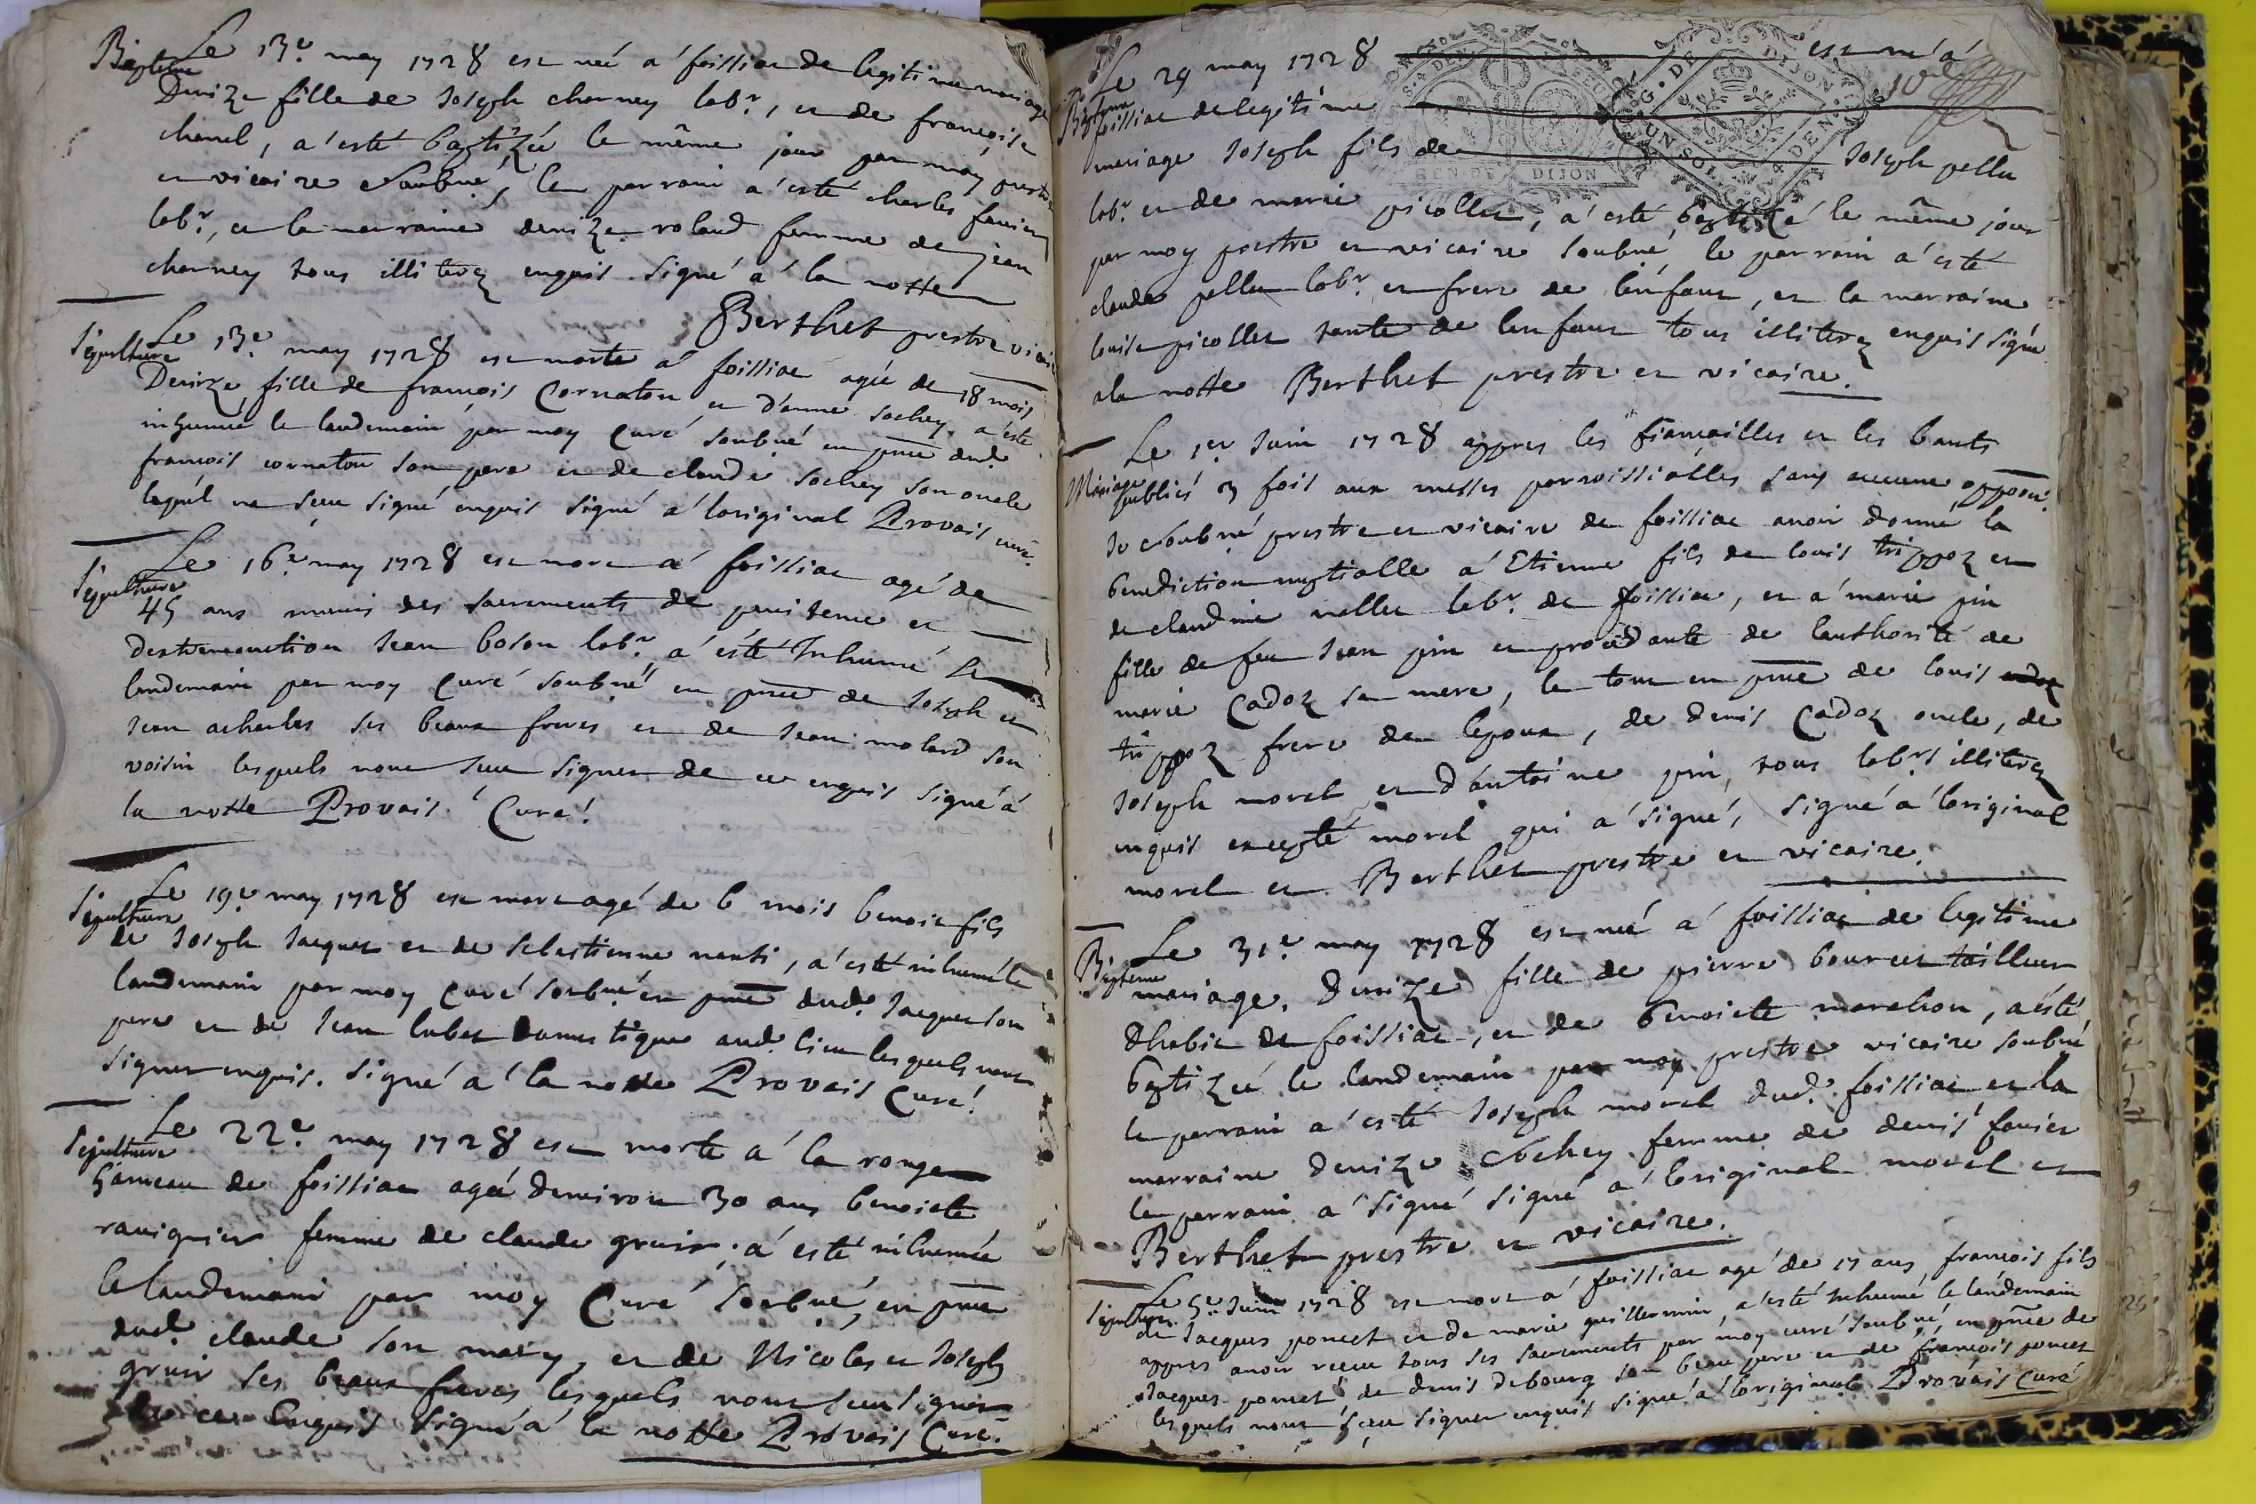 Bapteme
Le 13e. may 1728 est née a' foissiac de legitime mariage
Denize fille de Joseph charney labr., et de françoise
chanel, a'esté baptizée le même jour par moy prestre
et vicaire soubné, le parrain a'esté charles favier
labr., et la marraine denize roland femme de jean
charney tous illiterez enquis. signé a' la notte
Berthet prestre vicaire
Sépulture
Le 13e. may 1728 est morte a' foissiac agée de 18 mois
Denize, fille de françois Cornaton et d'anne sochey, a'esté
inhumée le landemain par moy Curé soubné en pnce dud.
françois cornaton son pere et de claude sochey son oncle
lequel na sceu signé enquis signé a' loriginal Provais curé.
Sépulture
Le 16e. may 1728 est mort a' foissiac agé de
45 ans munis des sacrements de penitence et
dextremonction Jean boson labr. a' été Inhumé le
landemain par moy Curé soubné en pnce de Joseph et
Jean acharles ses beaux freres et de Jean molard son
voisin lesquels nont sceu signer de ce enquis signé a'
la notte Provais Curé!
Sépulture
Le 19e. may 1728 est mort agé de 6 mois benoit fils
de Joseph Jacquet et de sebastienne nanti, a'esté inhumé le
landemain par moy Curé soubné en pnce dud. Jacquet son
pere et de Jean lubet domestique aud. lieu lesquels nont
signer enquis. signé a' la notte Provais Curé!
Sépulture
Le 22e. may 1728 est morte a' la ronge
hameau de foissiac agée denviron 30 ans benoiete
ravignier femme de claude gruir, a' esté inhumée
le landemain par moy Curé soubné, en pnce
dud. claude son mary, et de Nicolas et Joseph
gruir ses beaux freres lesquels nont sceu signer
de ce Enquis signé a' la notte Provais Curé.
GEN DE DIJON
G. DE DIJON
UN SOL 4 DEN.
Bapteme
Le 29 may 1728 est né a'
foissiac de legitime
mariage Joseph fils de Joseph pellu
labr. et de marie picollet, a' esté baptizé le même jour
par moy prestre et vicaire soubné, le parrain a' esté
claude pellu labr. et frere de lenfant, et la marraine
louise picollet tante de lenfant tous illiterez enquis signé
a la notte Berthet prestre et vicaire.
Mariage
Le 1er Juin 1728 appres les fiançailles et les bants
publiés 3 fois aux messes parroissialles sans aucune opposon.
Je soubné prestre et vicaire de foissiac avoir donné la
benediction nuptialle a' Etienne fils de louis trippoz et
de claudine vellet labr. de foissiac, et a' marie pin
fille de feu Jean pin et procedante de lauthorité de
marie Cadoz sa mere, le tout en pnce de louis
trippoz frere de lepoux, de denis Cadoz oncle, de
Joseph morel et d'antoine pin, tous labrs. illiterez
enquis excepté morel qui a' signé, signé a' loriginal
morel et Berthet prestre et vicaire.
Bapteme
Le 31e. may 1728 est née a' foissiac de legitime
mariage. Denize fille de pierre bourcet tailleur
dhabit de foissiac, et de benoiete marchon, a esté
baptizée le landemain par moy prestre vicaire soubné
le parrain a' esté Joseph morel dud. foissiac et la
marraine denize sochey femme de denis favier
le parrain a' signé signé a' loriginal morel et
Berthet prestre et vicaire.
Sépulture
Le 5e. Juin 1728 est mort a' foissiac agé de 17 ans françois fils
de Jacques poncet et de marie guillermin, a'esté Inhumé le landemain
appres avoir receu tous ses sacrements par moy curé soubné, en pnce de
Jacques poncet de denis debourg son beau pere et de françois poncet
lesquels nont sceu signer enquis signé a' loriginal Provais Curé